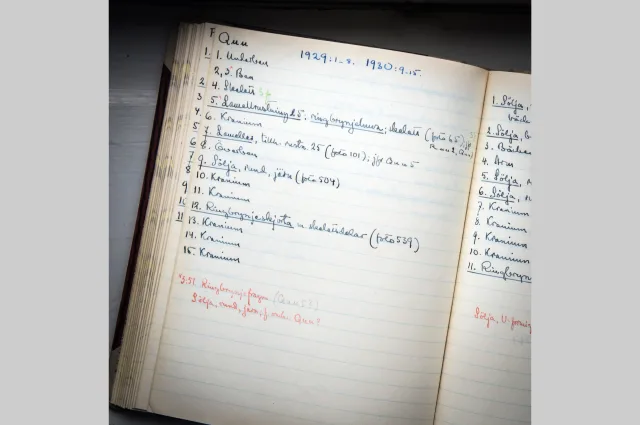 F Quu
1929:1-8. 1930:9-15.
1. 1. Underben
2, 3. Ben
2 4. Skelett
3 5. Lamellrustning 25; ringbrynjehuva; skelett (foto 65); jfr
4. 6. Kranium
5 7. Lameller, till rustn. 25 (foto 101); jfr Quu 5
6 8.
7 9. Sölja, rund, järn (foto 504)
8 10. Kranium
9 11. Kranium
10 12. Ringbrynjeskjorta m. skelettdelar (foto 539)
11 13. Kranium
14. Kranium
15. Kranium
Ringbrynjefragm
Sölja, rund, järn, f. Quu?
1. Sölja,
2. Sölja,
3.
4. Arm
5. Sölja,
6. Sölja,
7. Kranium
8. Kranium
9. Kranium
10. Kranium
11. Ringbrynj
Sölja, U-formig